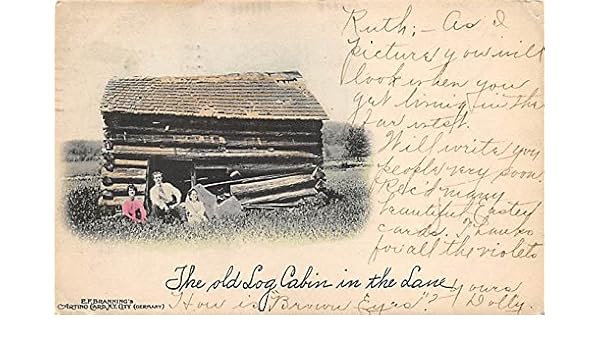 Ruth;- As I
picture you will
look when you
get living in the
far west.
Will write you
people very soon.
Rec'd many
beautiful Easter
cards. Thanks
for all the violets
The old Log Cabin in the Lane
Yours
Dolly.
"How is "Brown Eyes"?
E.F. BRANNING'S
ARTINO CARD, N.Y. CITY (GERMANY)